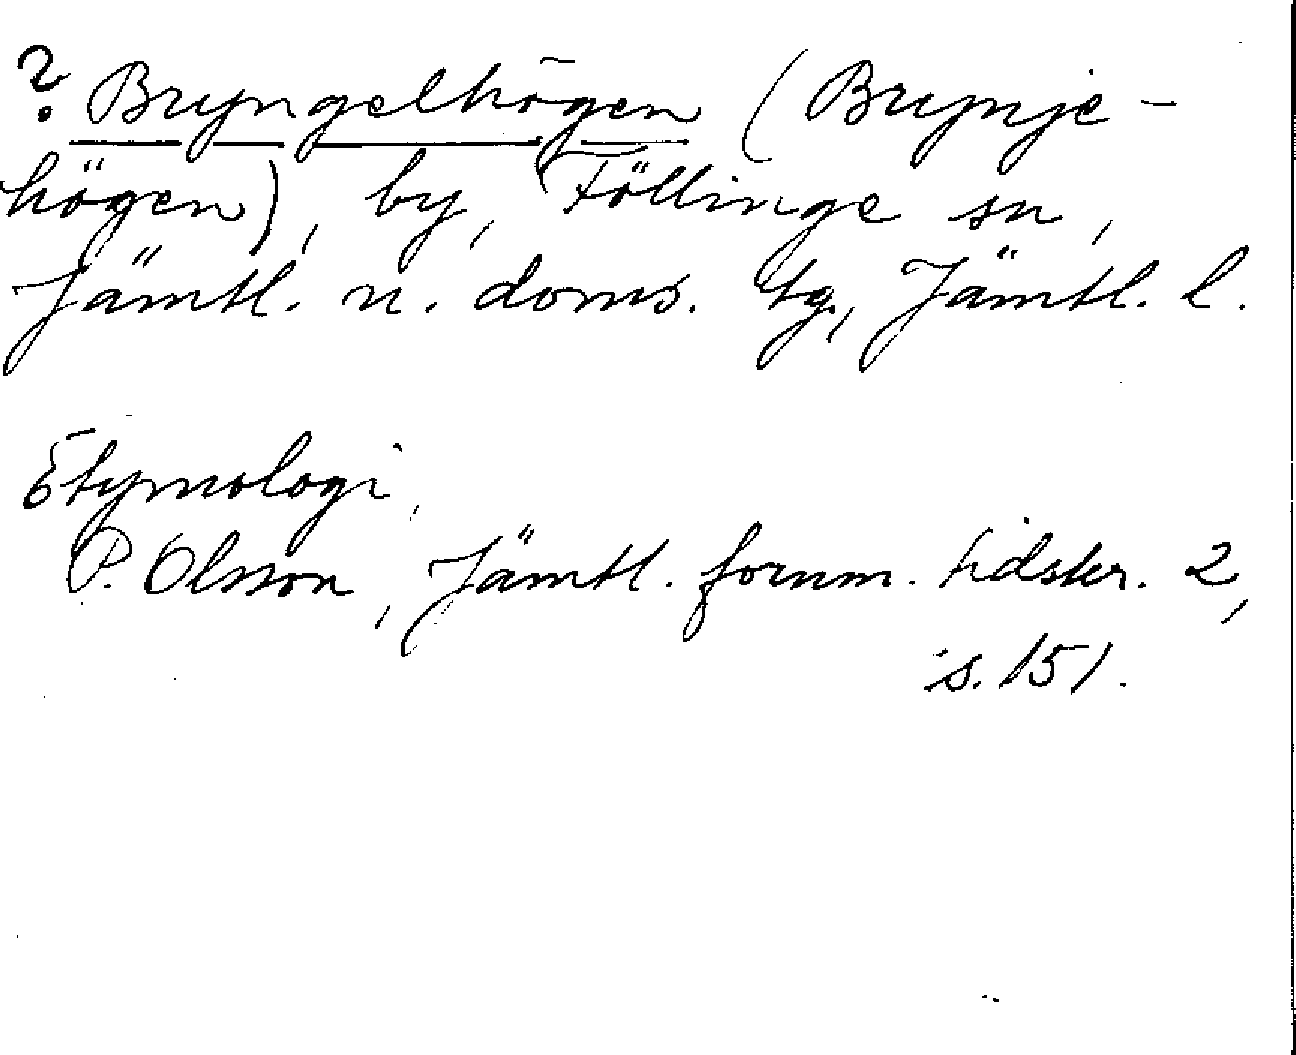 ? Bryngelhögen (Brynje-
högen), by, Föllinge sn,
Jämtl. n. doms. tg., Jämtl. l.
Etymologi,
P. Olsson, Jämtl. fornm. tidskr. 2,
s. 151.